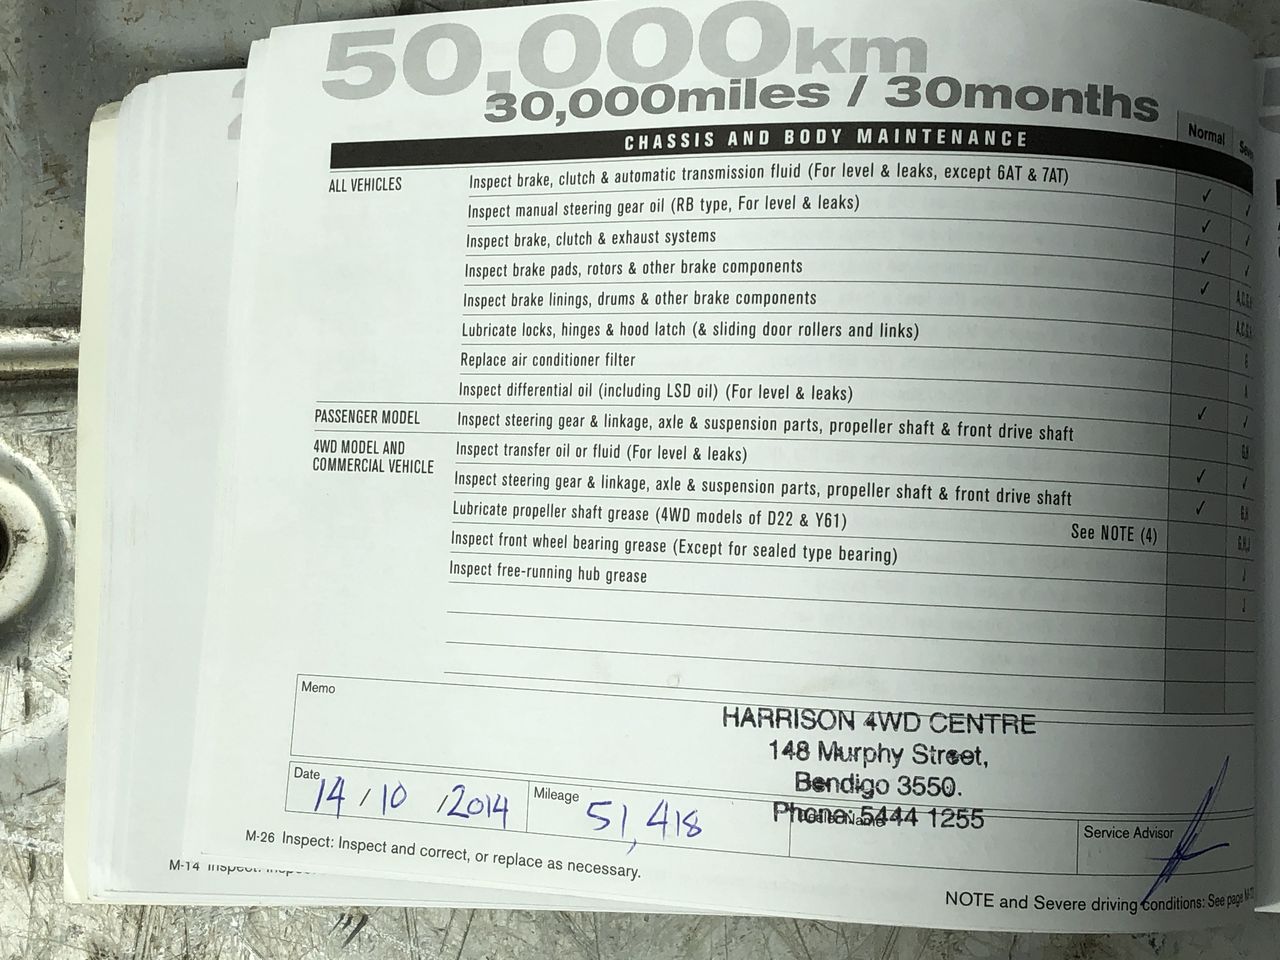 50,000km
30,000miles / 30months
CHASSIS AND BODY MAINTENANCE
Normal
ALL VEHICLES
Inspect brake, clutch & automatic transmission fluid (For level & leaks, except 6AT & 7AT)
✓
Inspect manual steering gear oil (RB type, For level & leaks)
✓
Inspect brake, clutch & exhaust systems
✓
Inspect brake pads, rotors & other brake components
✓
Inspect brake linings, drums & other brake components
Lubricate locks, hinges & hood latch (& sliding door rollers and links)
Replace air conditioner filter
Inspect differential oil (including LSD oil) (For level & leaks)
✓
PASSENGER MODEL
Inspect steering gear & linkage, axle & suspension parts, propeller shaft & front drive shaft
4WD MODEL AND
COMMERCIAL VEHICLE
Inspect transfer oil or fluid (For level & leaks)
✓
Inspect steering gear & linkage, axle & suspension parts, propeller shaft & front drive shaft
✓
Lubricate propeller shaft grease (4WD models of D22 & Y61) See NOTE (4)
Inspect front wheel bearing grease (Except for sealed type bearing)
Inspect free-running hub grease
Memo
HARRISON 4WD CENTRE
148 Murphy Street,
Bendigo 3550.
Phone: 5444 1255
Date
14 / 10 / 2014
Mileage
51,418
Dealer Name
Service Advisor
M-26 Inspect: Inspect and correct, or replace as necessary.
M-14
NOTE and Severe driving conditions: See page